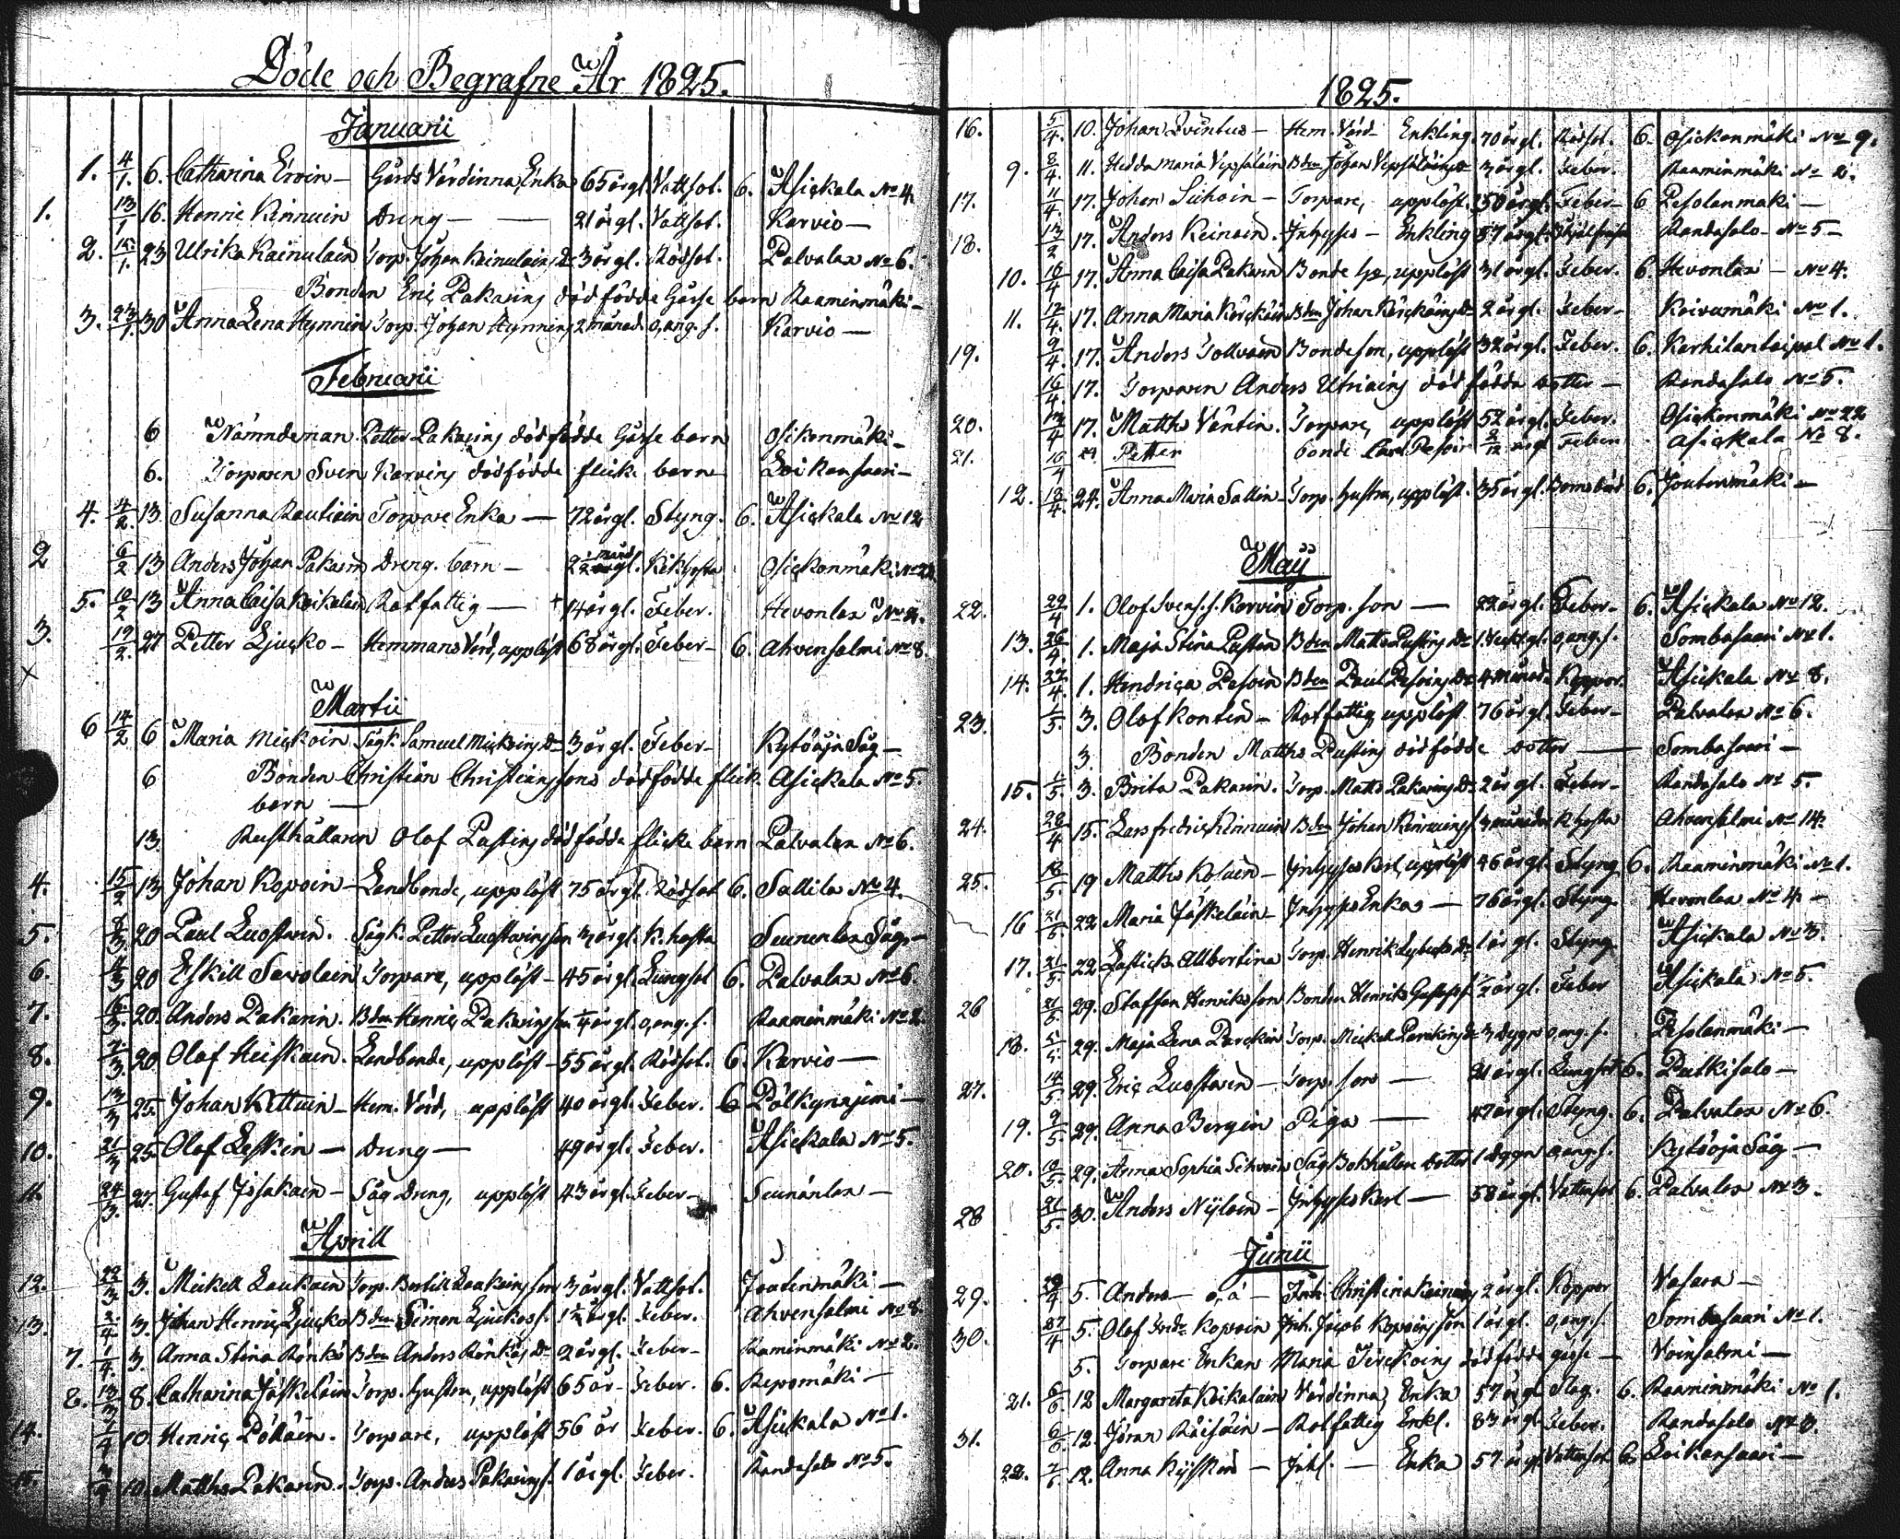 Döde och Begrafne År 1825.
Januarii
1. 4/1. 6. Catharina Ervin - Gårds Värdinna, Enka 65 årgl. Vattsot. 6. Asickala No 4.
1. 13/1 16. Henric Kinnuin Dreng - 21 årgl. Vattsot. Karvio -
2. 15/1. 23 Ulrika Kainulain Torp. Johan Kainulains Dr 3 årgl. Rödsot. Palvalax No 6.
Bonden Eric Pakarins dödfödde Gåsse barn Raaminmäki -
3. 23/1. 30 Anna Lena Hynnin Torp. Johan Hynnins 2 månad. o, ang. s. Karvio -
Februarii
6 Nämndeman Petter Pakarins dödfödde Gåsse barn Osikonmäki -
6. Torparen Sven Karvins dödfödde flicke barn Loikansaari -
4. 4/2. 13 Susanna Rautiain Torpare Enka - 72 årgl. Styng. 6. Asickala No 12
2 6/2 13 Anders Johan Pakarin Dreng. barn - Kikhosta Osickonmäki No 22
5. 10/2 13 Anna Caisa Koikalain Rotfattig - 14 årgl. Feber. Hevonlax No 4.
3. 19/2. 27 Petter Ljucko - Hemmans Värd, upplöst 68 årgl. Feber - 6. Ahvensalmi No 8.
Martii
6 14/2 6 Maria Mickoin Sågk. Samuel Mickoins Dr 3 årgl. Feber - Kytöoja Såg -
6 Bonden Christian Christianssons dödfödde flick Asickala No 5.
barn -
13. Rusthållaren Olof Pastins dödfödde flicke barn Palvalax No 6.
4. 15/2 13 Johan Kopoin - Landbonde, upplöst 75 årgl. Rödsot 6. Sallila No 4.
5. 8/3 20 Paul Luostarin. Sågk. Petter Luostarins son 3 årgl. K. hosta Seunanlax Såg -
6. 11/3 20 Eskill Savolain Torpare, upplöst - 45 årgl. Lungsot 6. Palvalax No 6.
7. 16/3. 20. Anders Pakarin. Bden Henric Pakarins son 1/4 årgl. o, ang. s. Raaminmäki No 2.
8. 20 Olof Heiskain. Landbonde, upplöst - 55 årgl. Rödsot. 6. Karvio -
9. 13/3 25. Johan Kettuin - Hem. Värd, upplöst 40 årgl. Feber. 6 Pölkynajemi -
10. 21/3 25. Olof Leskin - Dreng - 49 årgl. Feber. Asickala No 5.
11. 24/3. 27. Gustaf Issakain - Såg Dreng, upplöst 43 årgl. Feber - Seunanlax -
Aprill
12. 22/3 3. Mickell Laukain Torp. Bertill Laukains son 3 årgl. Vattsot. Joutenmäki -
13. 2/4 3. Johan Henric Ljucko Bden Simon Ljuckos s. 1 1/2 årgl. Feber. Ahvensalmi No 8.
7. 1/4. 3. Anna Stina Rönkö Bden Anders Rönkös Dr 2 årgl. Feber - Raminmäki No 2.
8. 8. Catharina Jäskeläin Torp. hustru, upplöst 65 år - Feber. 6. Repomäki -
14. 1/4 10. Henric Pöllöin. Torpare, upplöst 56 år Feber. 6. Asickala No 1.
15. 10. Matths Pakarin. Torp. Anders Pakarins s. 1 årgl. Feber. Randasalo No 5.
1825.
16. 5/4. 10. Johan Evintus - Hem. Värd Enkling. 70 årgl. Rödsot. 6. Osickonmäki No 9.
9. 8/4. 11. Hedda Maria Vepsäläin Bden Johan Vepsäläins Dr 3 årgl. Feber. Raaminmäki No 2.
17. 11/4. 17. Johan Suhoin - Torpare, upplöst. 50 årgl. Feber - 6 Pesolanmäki -
18. 17. Anders Keinoin. Inhyses - Enkling 57 årgl. Randasalo - No 5 -
10. 16/4 17. Anna Caisa Pakarin Bonde hu, upplöst 31 årgl. Feber. 6. Hevonlax - No 4.
11. 12/4. 17. Anna Maria Kärckäin Bden Johan Kärckäins Dr 2 årgl. Feber - Koivumäki No 1.
19. 9/4. 17. Anders Tollvain Bondeson, upplöst 32 årgl. Feber. 6. Karhilanlaipal No 1.
16/4 17. Torparen Anders Utriains dödfödda dotter - Randasalo No 5.
20. 13/4 17. Matths Väntin. Torpare, upplöst 52 årgl. Feber. Osickonmäki No 22
21. 16/4 Petter bonde Feber Asickala No 8.
12. 18/4. 24. Anna Maria Sallin - Torp. hustru, upplöst. 35 årgl. Barnsbörd 6. Joutenmäki -
Maij
22. 29/4 1. Olof Svens. s. Karvin Torp. son - 22 årgl. Feber - 6. Asickala No 12.
13. 26/4 1. Maja Stina Pastin Bden Matths Pastins Dr o, ang. s. Sombasaari No 1.
14. 1. Hendrica Pesoin Bden Paul Pesoins Dr 4 månad. Koppor. Asickala No 8.
23. 1/5. 3. Olof Kontin - Rotfattig upplöst 76 årgl. Feber - Palvalax No 6.
3. Bonden Matths Pastins dödfödde dotter - Sombasaari -
15. 1/5. 3. Brita Pakarin. Torp. Matts Pakarins Dr 2 årgl. Feber - Randasalo No 5.
24. 28/4 15. Lars fredric Kinnuin Bden Johan Kinnuins s. 3 månader K. hosta Ahvensalmi No 14.
25. 18/5. 19 Matths Kolain - Inhyses karl, upplöst 46 årgl. Styng 6. Raaminmäki No 1.
16 21/5. 22 Maria Jäskeläin - Inhyses Enka - 76 årgl. Styng. Hevonlax No 4 -
17. 21/5. 22 Albertina Torp. Henrik 1 årgl. Styng. Asickala No 3.
26 21/5 29. Staffan Henriksson Bonden Henriks 1/2 årgl. Feber Asickala No 5.
18. 5/5. 29. Maja Lena Torp. Mickel 3 dygn o, ang. s. Pesolanmäki -
27. 14/5 29. Eric Luostarin - Torp. son - 21 årgl. Lungsot 6. Putkisalo -
19. 9/5. 29. Anna Bergin Piga - 47 årgl. Styng. 6. Palvalax No 6.
20. 18/5. 29. Anna Sophia Sihvoin Såg Bokhållare dotter 1 dygn o, ang. s. Kytöoja Såg -
28 21/5. 30. Anders Nyloin - Inhyses Karl - 58 årgl. Vattusot 6. Palvalax No 3.
Junii
29. 5. Anders - o, ä - Inh. Christina Keinoins 2 årgl. Koppor Vasara -
30. 27/4 5. Olof Kopoin Inh. Jacob Kopoins son 1 årgl. o, ang. s. Sombasaari No 1.
5. Torpare Enkan Maria dödfödde gåsse - Voinsalmi -
21. 6/6 12 Margareta Koikalain Värdinna, Enka 57 årgl Slag. 6. Raaminmäki No 1.
31. 6/6 12. Jöran Räisäin - Rotfattig Enkl. 83 årgl Feber. Randasalo No 3.
22. 7/6 12. Anna Kyssköin - Inh. - Enka 57 årgl Vattusot 6. Loikansaari -